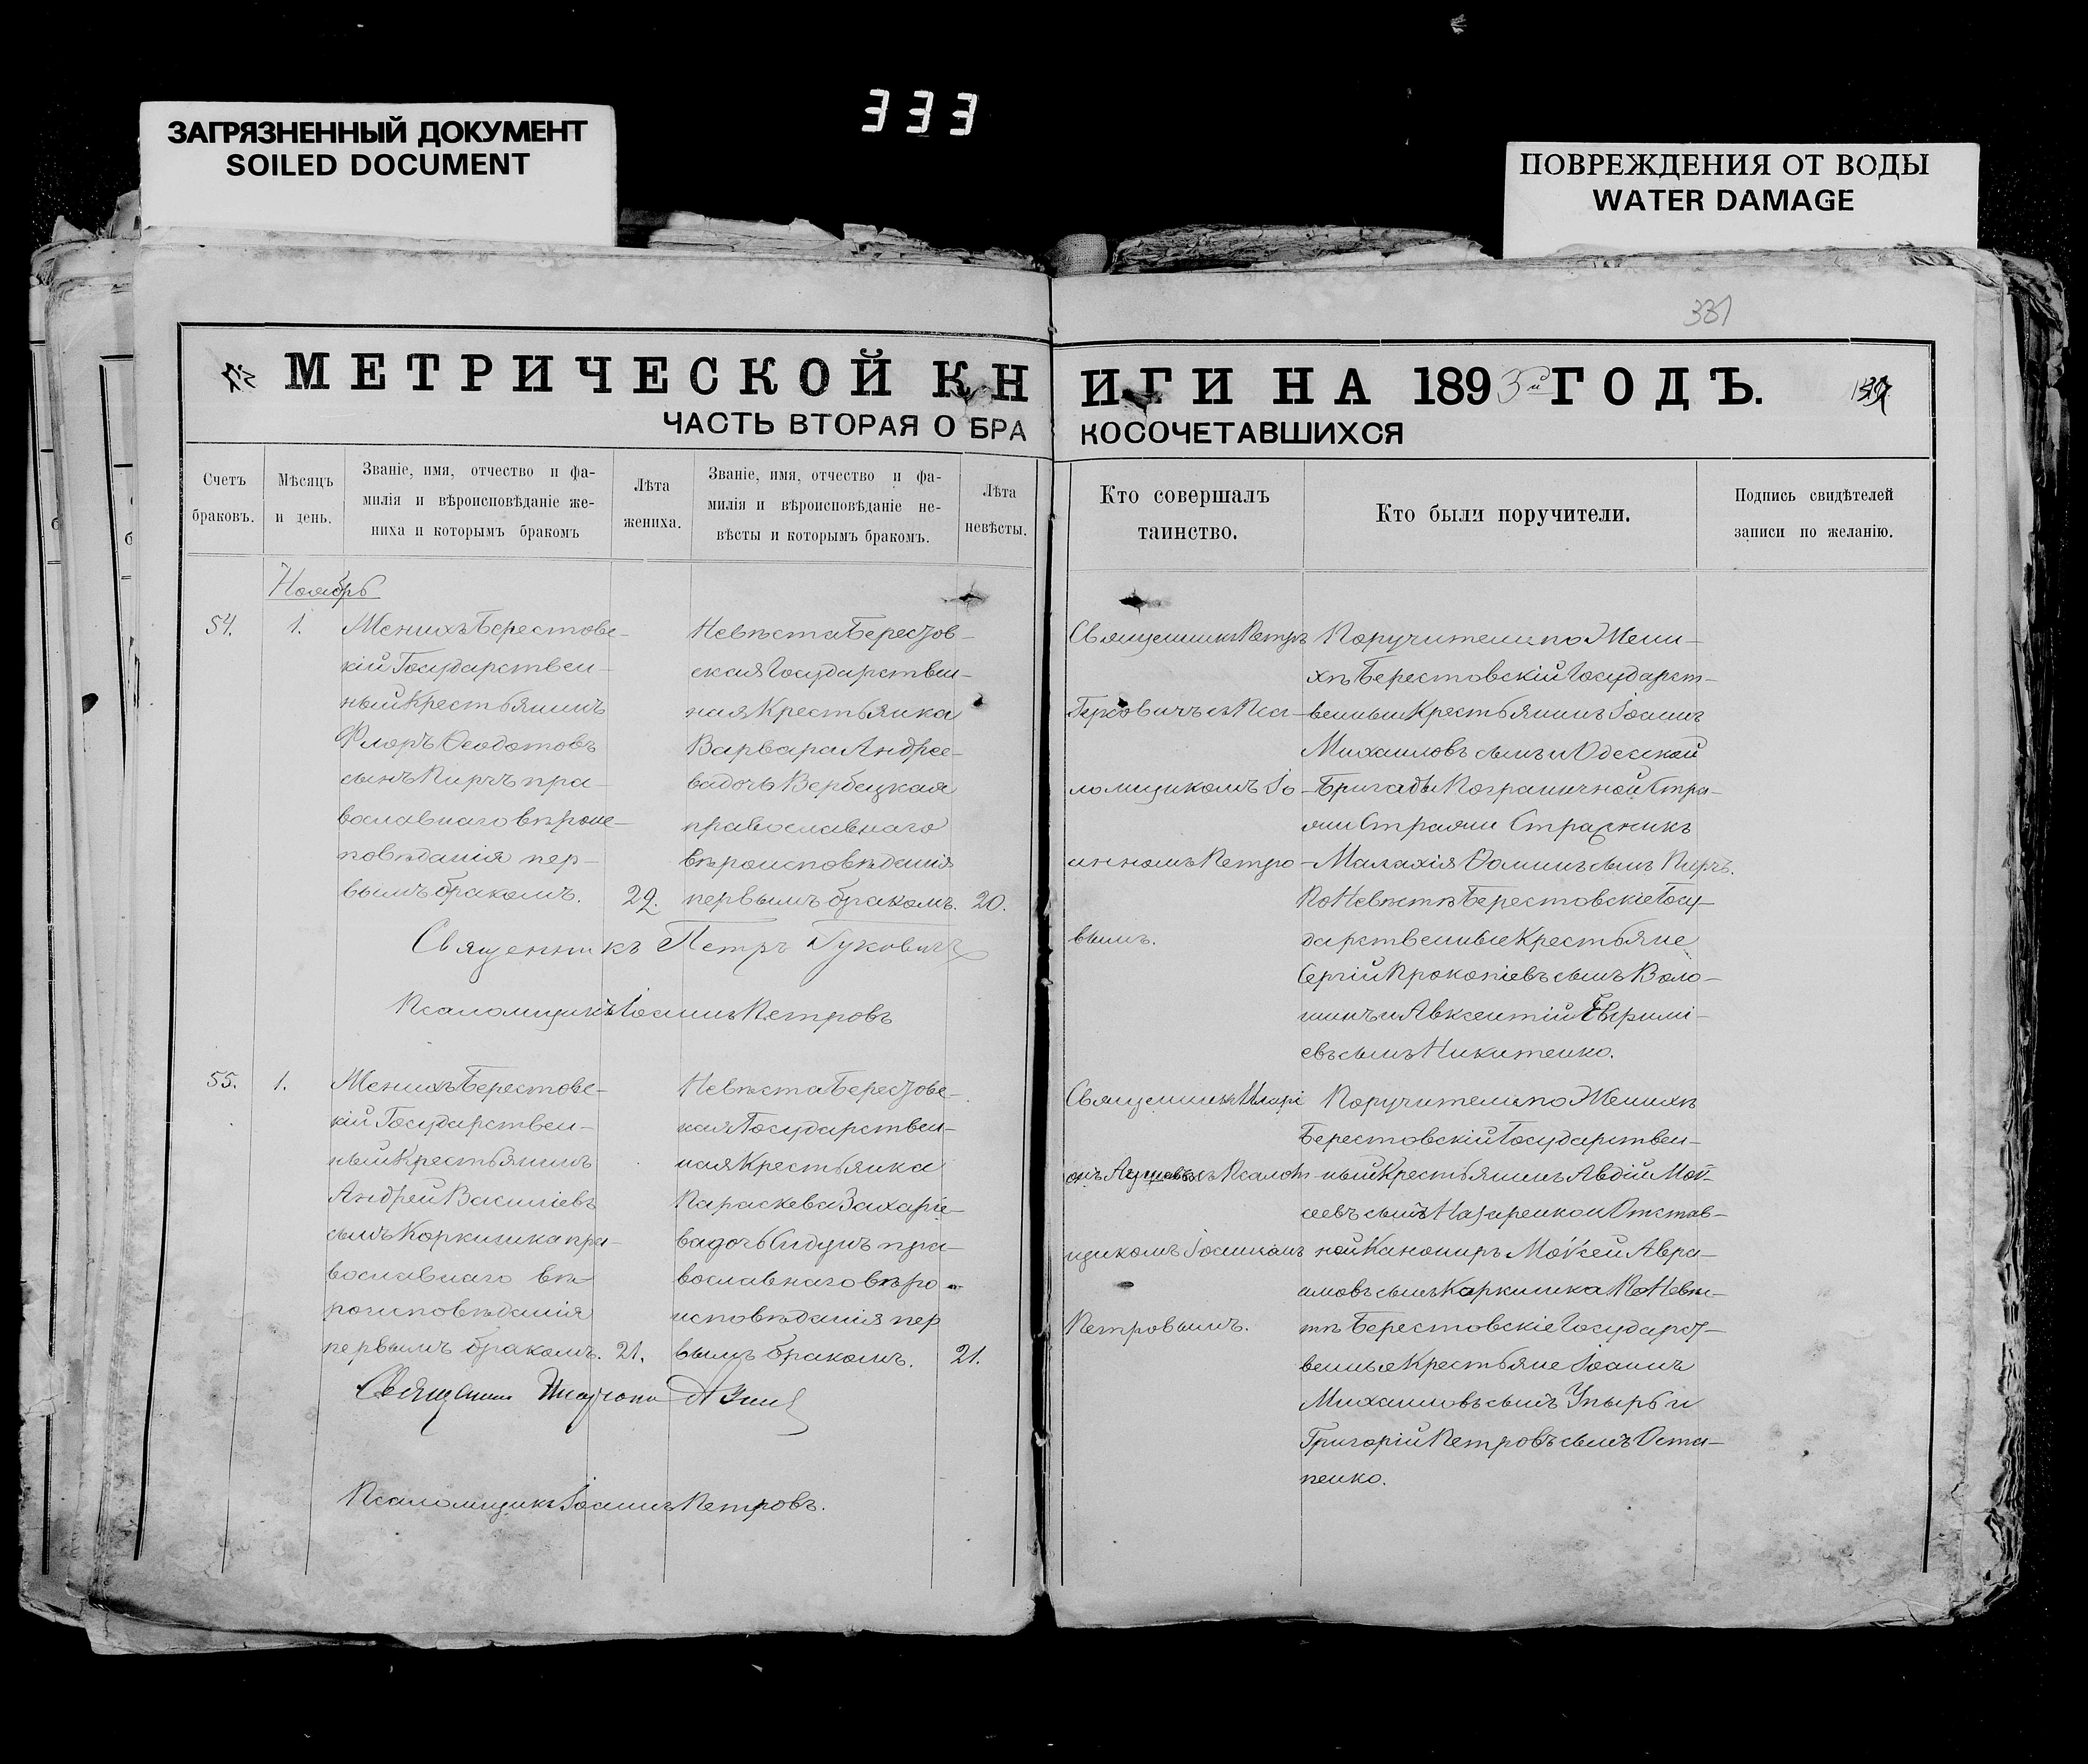 333
ЗАГРЯЗНЕННЫЙ ДОКУМЕНТ
SOILED DOCUMENT
ПОВРЕЖДЕНИЯ ОТ ВОДЫ
WATER DAMAGE
331
МЕТРИЧЕСКОЙ КН
ИГИ НА 1893й ГОДЪ.
ЧАСТЬ ВТОРАЯ О БРА
КОСОЧЕТАВШИХСЯ
Счетъ
браковъ.
Мѣсяцъ
и день.
Званіе, имя, отчество и фа-
милія и вѣроисповѣданіе же-
ниха и которымъ бракомъ
Лѣта
жениха.
Званіе, имя, отчество и фа-
милія и вѣроисповѣданіе не-
вѣсты и которымъ бракомъ.
Лѣта
невѣсты.
Кто совершалъ
таинство.
Кто были поручители.
Подпись свидѣтелей
записи по желанію.
Ноябрь
54.
1.
Женихъ Берестовс-
кій Государствен-
ный Крестьянинъ
Флоръ Ѳеодотовъ
сынъ Пирчъ пра-
вославнаго вѣроис-
повѣданія пер-
вымъ бракомъ.
22.
Невѣста Берестов-
ская Государствен-
ная Крестьянка
Варвара Андрее-
ва дочь Вербецкая
православнаго
вѣроисповѣданія
первымъ бракомъ.
20.
Священникъ Петръ
с Пса-
ломщикомъ Іо-
анномъ Петро-
вымъ.
Поручители по Жени-
хѣ Берестовскій Государст-
венный Крестьянинъ Іоаннъ
Михаиловъ сынъ и Одесской
Бригады Пограничной Стра-
жи Стражи Стражникъ
Малахія Ѳоминъ сынъ Пирчъ.
По Невѣстѣ Берестовскіе Госу-
дарственные Крестьяне
Сергій Прокопіевъ сынъ Воло-
шинъ и Авксентій Евфимі-
евъ сынъ Никитенко.
Священникъ Петръ
Псаломщикъ Іоаннъ Петровъ
55.
1.
Женихъ Берестовс-
кій Государствен-
ный Крестьянинъ
Андрей Василіевъ
сынъ Коркишка пра-
вославнаго вѣ-
роисповѣданія
первымъ бракомъ.
21.
Невѣста Берестовс-
кая Государствен-
ная Крестьянка
Параскева Захаріе-
ва дочь Сидунъ пра-
вославнаго вѣро-
исповѣданія пер
вымъ бракомъ.
21.
Священникъ Илари
онъ с Псалом
щикомъ Іоанномъ
Петровымъ.
Поручители по Женихѣ
Берестовскій Государствен-
ный Крестьянинъ Авдій Мой-
сеевъ сынъ Назаренко и Отстав-
ной Канониръ Мойсей Авра-
амовъ сынъ Каркишка По Невѣс-
тѣ Берестовскіе Государст-
венные Крестьяне Іоаннъ
Михаиловъ сынъ Упырь и
Григорій Петровъ сынъ Оста-
пенко.
Псаломщикъ Іоаннъ Петровъ.